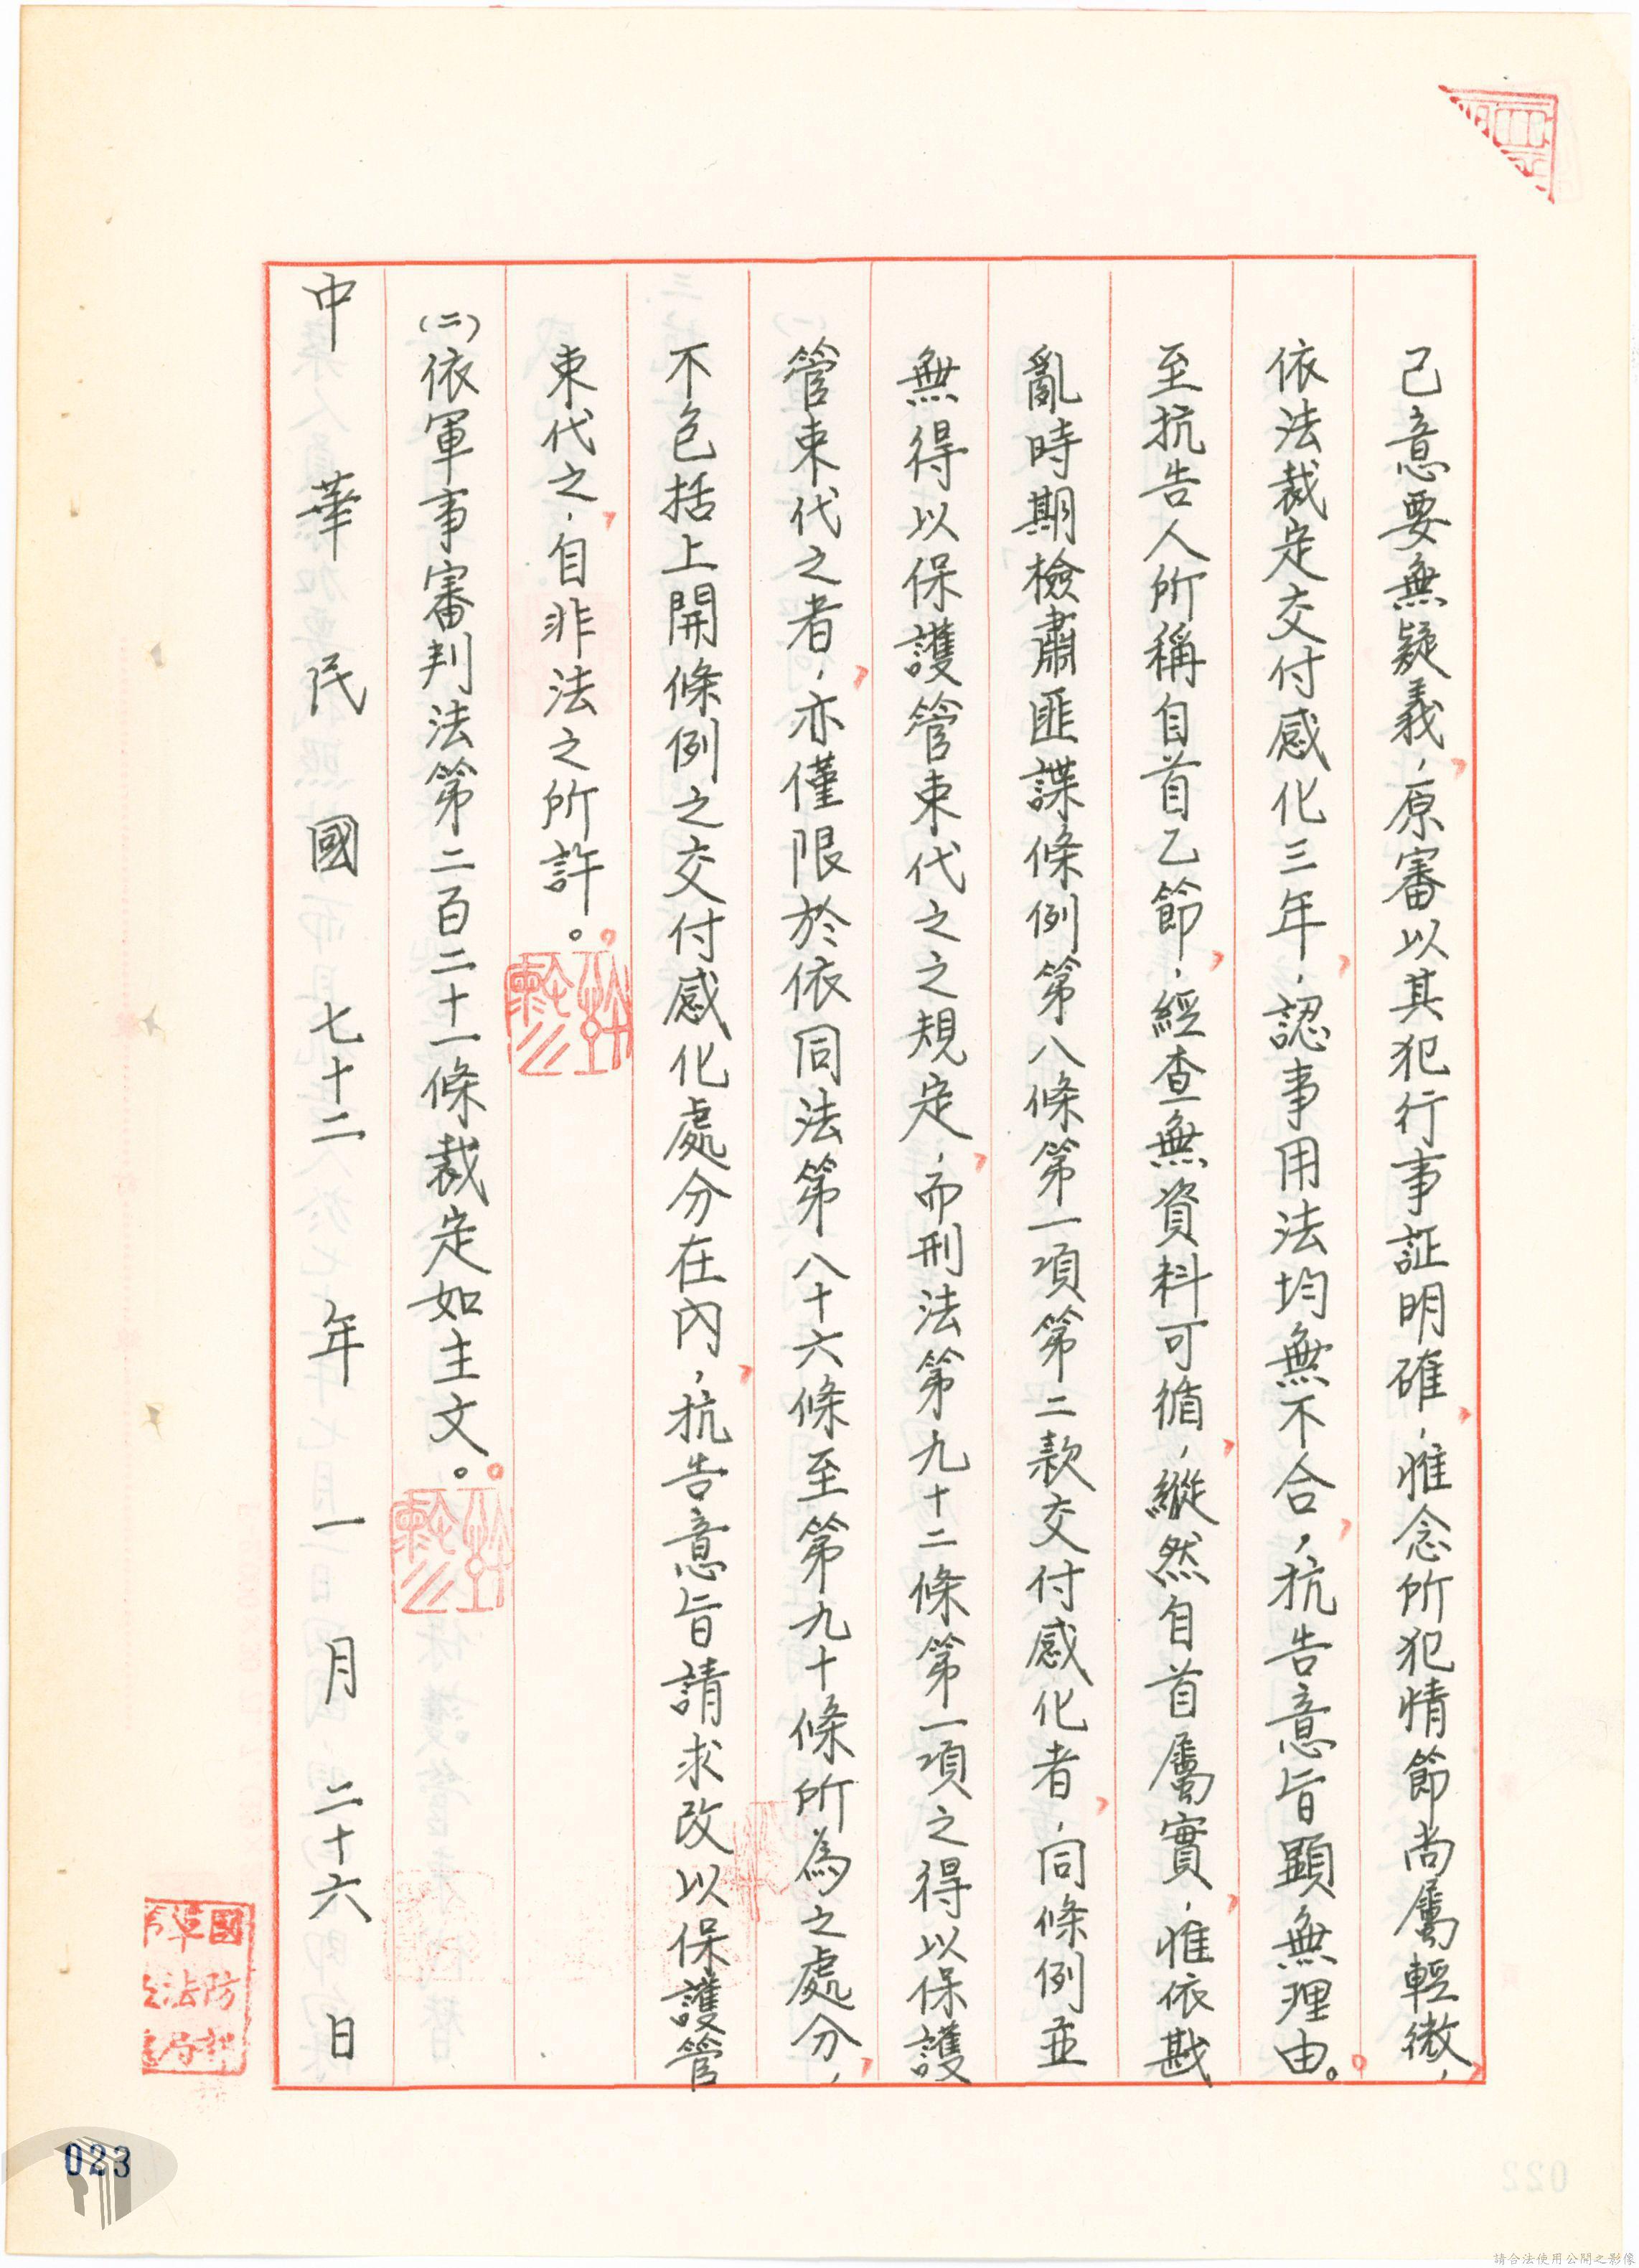 己意要無疑義，原審以其犯行事証明確，惟念所犯情節尚屬輕微，
依法裁定交付感化三年，認事用法均無不合，抗告意旨顯無理由。
至抗告人所稱自首乙節，經查無資料可循，縱然自首屬實，惟依戡
亂時期檢肅匪諜條例第八條第一項第二款交付感化者，同條例並
無得以保護管束代之之規定，而刑法第九十二條第一項之得以保護
管束代之者，亦僅限於依同法第八十六條至第九十條所為之處分，
不包括上開條例之交付感化處分在內，抗告意旨請求改以保護管
束代之，自非法之所許。
(二)依軍事審判法第二百二十一條裁定如主文。
中華民國七十二年一月二十六日
國防部
軍法局
023
022
請合法使用公開之影像